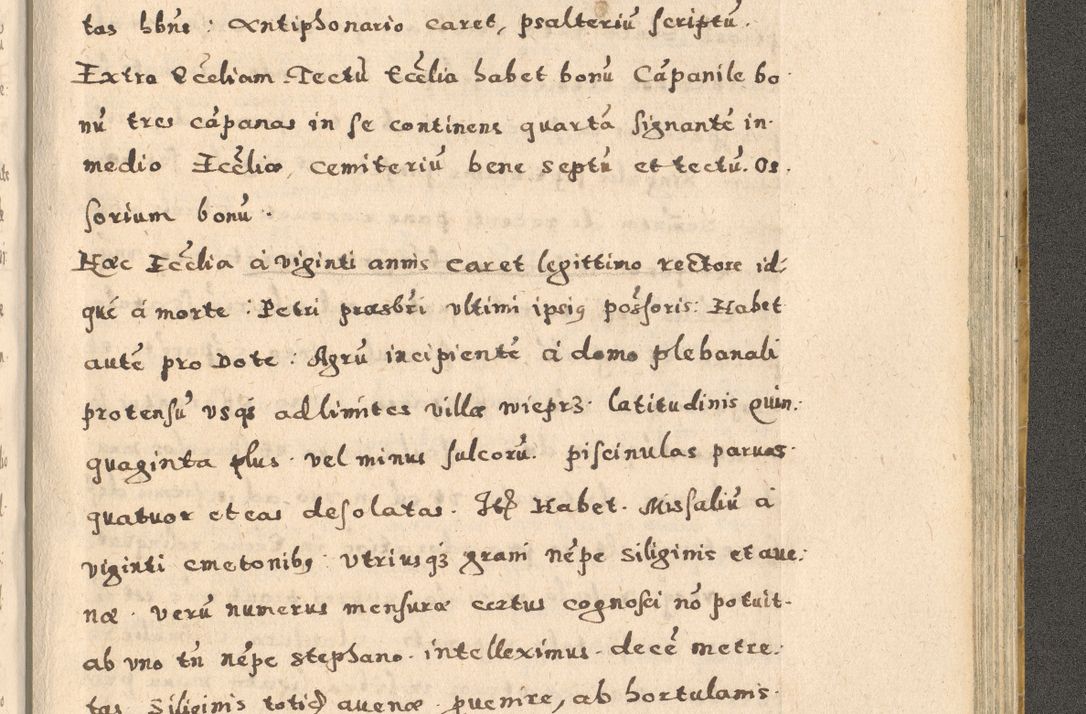 tas hbñs : Antiphonario caret, psalteriũ scriptũ.
Extra Eccliam Tectũ Ecclia habet bonũ Cãpanile bo
nũ tres cãpanas in se continens quartã signantẽ in
medio Eccliæ, cemiteriũ bene septũ et tectũ. Os
sorium bonũ.
Hæc Ecclia à viginti annis caret legittimo rectore id
quẽ á morte : Petri præsbri ultimi ipsiq possoris: Habet
autẽ pro Dote : Agrũ incipientẽ à domo plebanali
protensũ usqs ad limites villæ wieprz. latitudinis quin.
quaginta plus vel minus sulcorũ. piscinulas paruas.
quatuor et eas desolatas. Itẽ Habet. Missaliũ à
viginti cmetonibq utriusqz grani nẽpe siliginis et aue:
næ. verũ numerus mensuræ certus cognosci nõ potuit.
ab uno tñ nẽpe stephano. intelleximus. decẽ metre.
tas siliginis totiq auenæ. puenire, ab hortulanis.